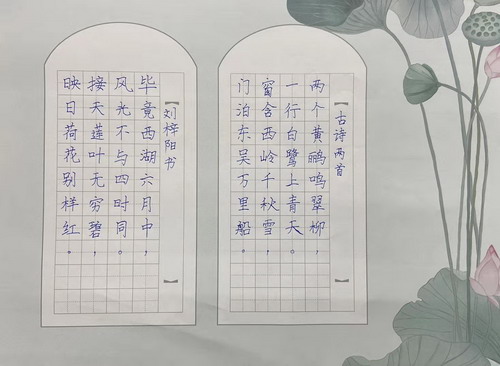 【古诗两首】
两个黄鹂鸣翠柳，
一行白鹭上青天。
窗含西岭千秋雪，
门泊东吴万里船。
【刘梓阳书】
毕竟西湖六月中，
风光不与四时同。
接天莲叶无穷碧，
映日荷花别样红。